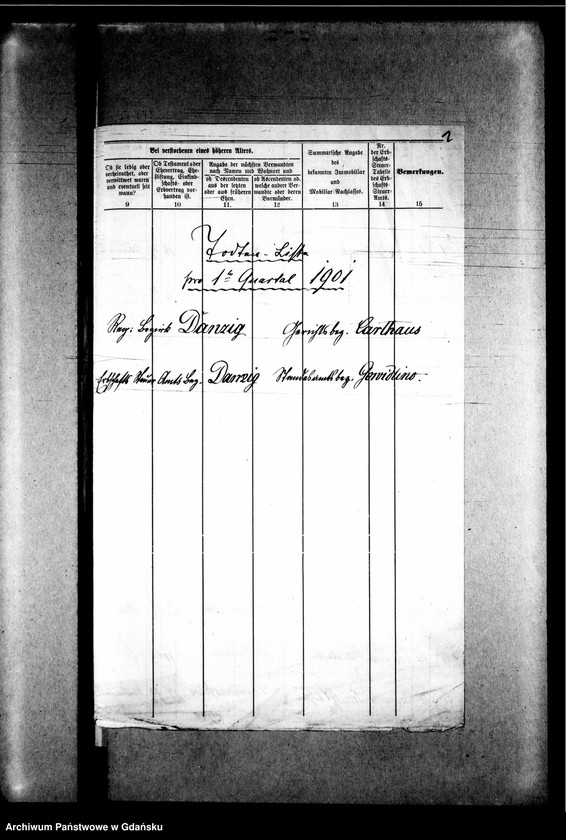 2
Bei verstorbenen eines höheren Alters.
Ob sie ledig oder
verheirathet, oder
verwittwet waren
und eventuell seit
wann?
9
Ob Testament oder
Ehevertrag, Ehe-
stiftung, Einkind-
schafts- oder
Erbvertrag vor-
handen ist.
10
Angabe der nächsten Verwandten
nach Namen und Wohnort und
ob Descendenten
aus der letzten
oder aus früheren
Ehen.
11
ob Ascendenten od.
welche andere Ver-
wandte oder deren
Vormünder.
12
Summarische Angabe
des
bekannten Immobiliar
und
Mobiliar-Nachlasses.
13
Nr.
der Erb-
schafts-
Steuer-
Tabelle
des Erb-
schafts-
Steuer-
Amts.
14
Bemerkungen.
15
Todten-Liste
pro 1te Quartal 1901
Reg: Bezirk Danzig Gerichtsbez. Carthaus
Erbschafts Steuer Amts Bez. Danzig Standesamtsbez. Gowidlino.
Archiwum Państwowe w Gdańsku